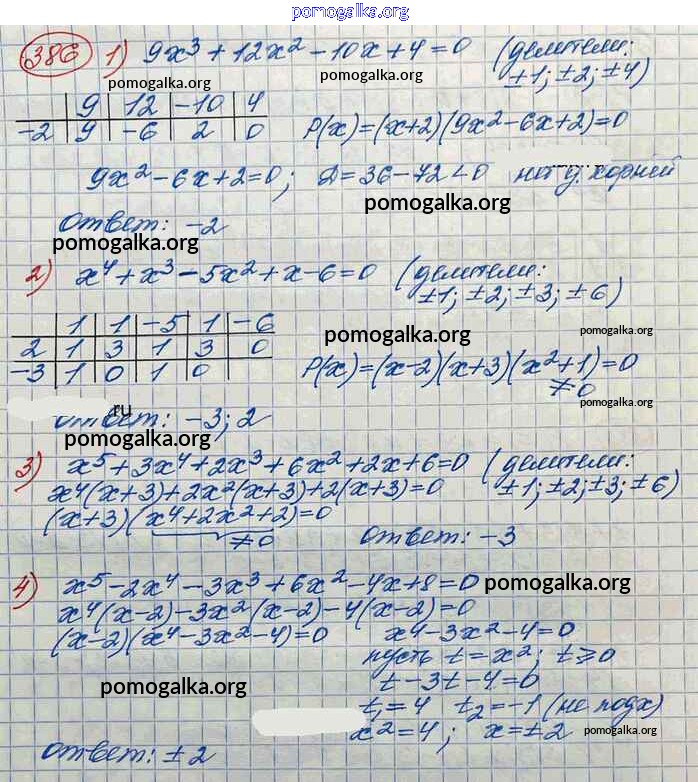 pomogalka.org
386 1) 9x³ + 12x² - 10x + 4 = 0 (делители:
±1; ±2; ±4)
pomogalka.org pomogalka.org
9 12 -10 4
-2 9 -6 2 0 P(x) = (x+2)(9x² - 6x + 2) = 0
9x² - 6x + 2 = 0; Д = 36 - 72 < 0 нет д. корней
pomogalka.org
Ответ: -2
pomogalka.org
2) x⁴ + x³ - 5x² + x - 6 = 0 (делители:
±1; ±2; ±3; ±6)
1 1 -5 1 -6
pomogalka.org pomogalka.org
2 1 3 1 3 0
-3 1 0 1 0 P(x) = (x-2)(x+3)(x²+1) = 0
≠0
pomogalka.org
ru
Ответ: -3; 2
pomogalka.org
3) x⁵ + 3x⁴ + 2x³ + 6x² + 2x + 6 = 0 (делители:
x⁴(x+3) + 2x²(x+3) + 2(x+3) = 0 ±1; ±2; ±3; ±6)
(x+3)(x⁴ + 2x² + 2) = 0
≠0 Ответ: -3
4) x⁵ - 2x⁴ - 3x³ + 6x² - 4x + 8 = 0 pomogalka.org
x⁴(x-2) - 3x²(x-2) - 4(x-2) = 0
(x-2)(x⁴ - 3x² - 4) = 0 x⁴ - 3x² - 4 = 0
пусть t = x²; t ⩾ 0
pomogalka.org t - 3t - 4 = 0
t₁ = 4 t₂ = -1 (не подх)
x² = 4; x = ±2 pomogalka.org
Ответ: ±2